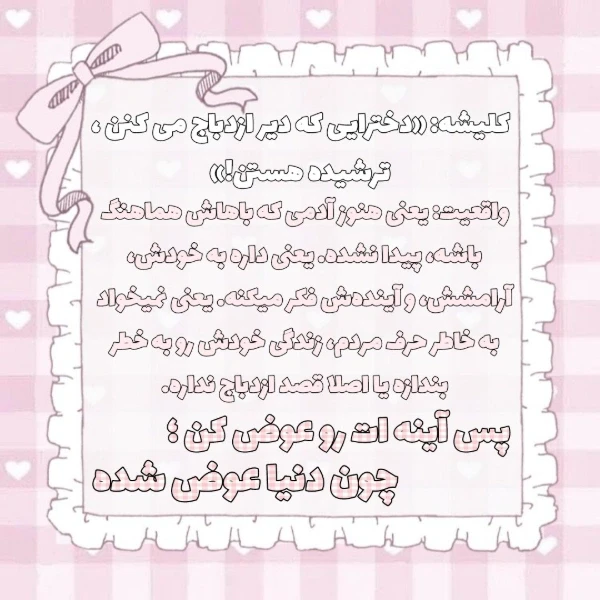 کلیشه: «دخترایی که دیر ازدباج می کنن ،
ترشیده هستن!»
واقعیت: یعنی هنوز آدمی که باهاش هماهنگ
باشه، پیدا نشده. یعنی داره به خودش،
آرامشش، و آینده‌ش فکر میکنه. یعنی نمیخواد
به خاطر حرف مردم، زندگی خودش رو به خطر
بندازه یا اصلا قصد ازدباج نداره.
پس آینه ات رو عوض کن ؛
چون دنیا عوض شده